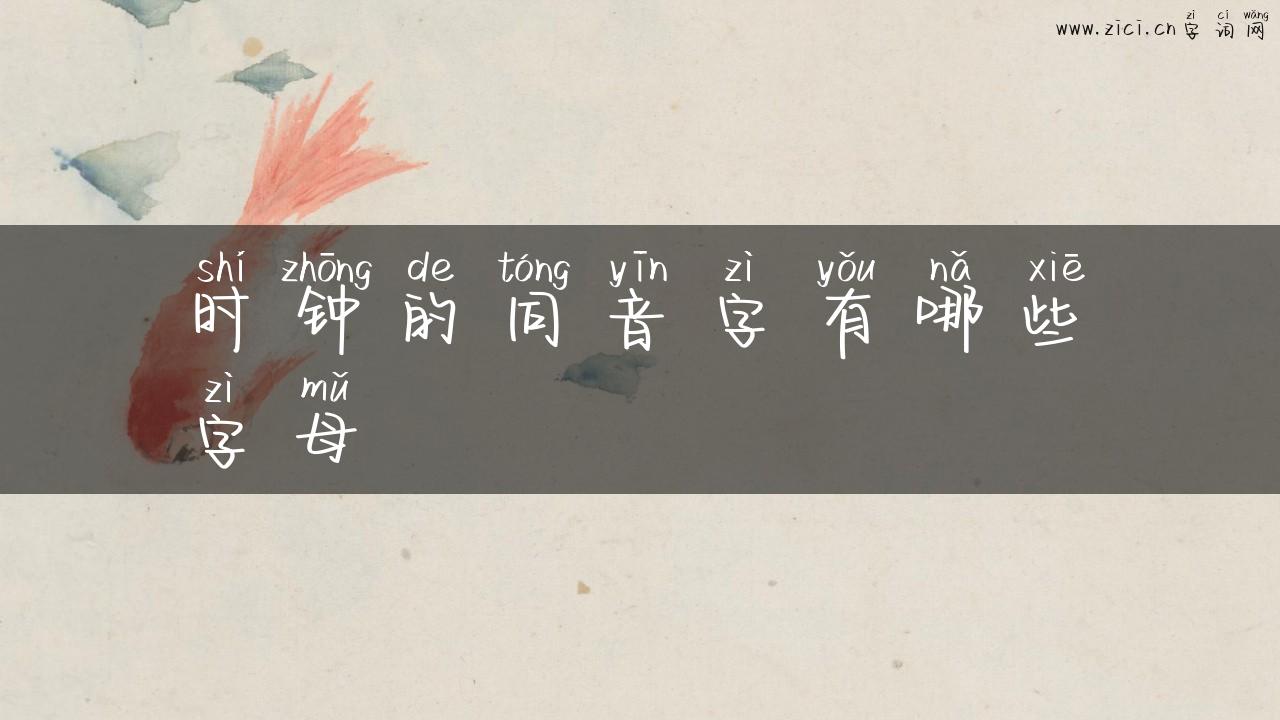 zì cí wǎng
www.zici.cn 字词网
shí zhōng de tóng yīn zì yǒu nǎ xiē
时钟的同音字有哪些
zì mǔ
字母